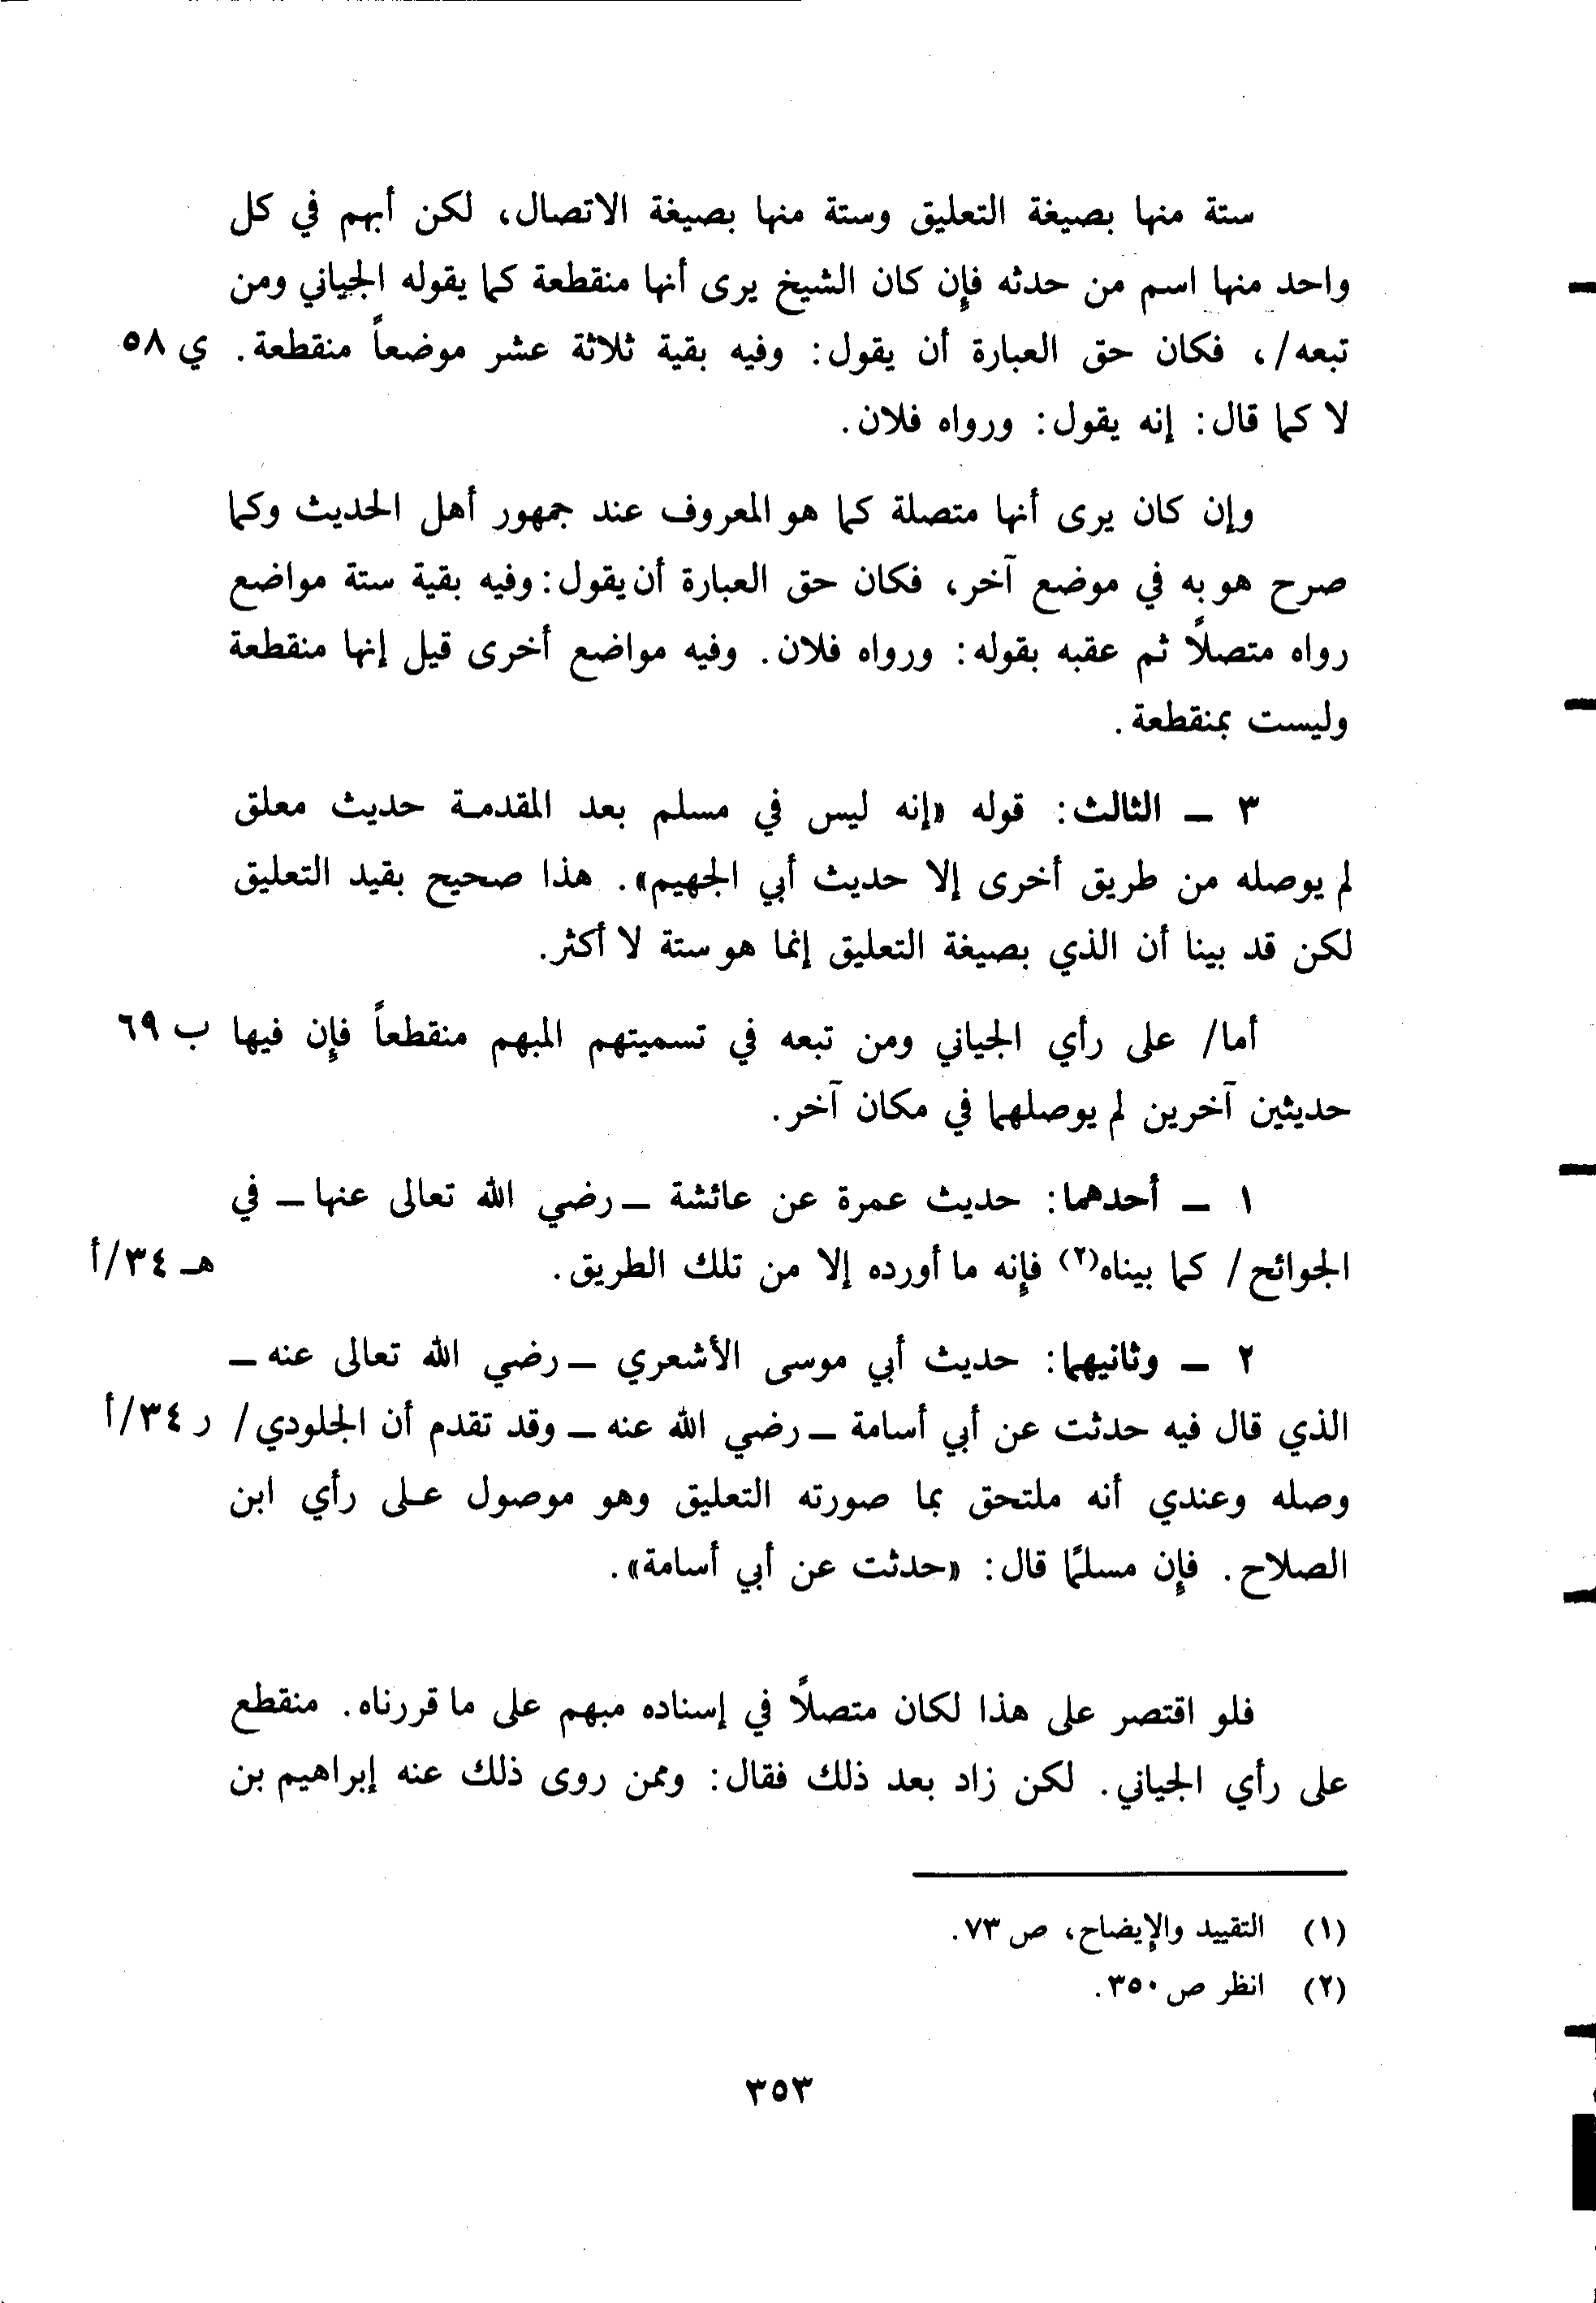 ستة منها بصيغة التعليق وستة منها بصيغة الاتصال، لكن أبهم في كل
واحد منها اسم من حدثه فإن كان الشيخ يرى أنها منقطعة كما يقوله الجياني ومن
تبعه/، فكان حق العبارة أن يقول: وفيه بقية ثلاثة عشر موضعاً منقطعة. ي ٥٨
لا كما قال: إنه يقول: ورواه فلان.
وإن كان يرى أنها متصلة كما هو المعروف عند جمهور أهل الحديث وكما
صرح هو به في موضع آخر، فكان حق العبارة أن يقول: وفيه بقية ستة مواضع
رواه متصلاً ثم عقبه بقوله: ورواه فلان. وفيه مواضع أخرى قيل إنها منقطعة
وليست بمنقطعة.
٣ ــ الثالث: قوله «إنه ليس في مسلم بعد المقدمـة حديث معلق
لم يوصله من طريق أخرى إلا حديث أبي الجهيم». هذا صحيح بقيد التعليق
لكن قد بينا أن الذي بصيغة التعليق إنما هو ستة لا أكثر.
أما/ على رأي الجياني ومن تبعه في تسميتهم المبهم منقطعاً فإن فيها ب ٦٩
حديثين آخرين لم يوصلهما في مكان آخر.
١ ــ أحدهما: حديث عمرة عن عائشة ــ رضي الله تعالى عنها ــ في
الجوائح/ كما بيناه(٢) فإنه ما أورده إلا من تلك الطريق. هـ ٣٤/أ
٢ ــ وثانيهما: حديث أبي موسى الأشعري ــ رضي الله تعالى عنه ــ
الذي قال فيه حدثت عن أبي أسامة ــ رضي الله عنه ــ وقد تقدم أن الجلودي/ ر ٣٤/أ
وصله وعندي أنه ملتحق بما صورته التعليق وهو موصول عـلى رأي ابن
الصلاح. فإن مسلمًا قال: «حدثت عن أبي أسامة».
فلو اقتصر على هذا لكان متصلاً في إسناده مبهم على ما قررناه. منقطع
على رأي الجياني. لكن زاد بعد ذلك فقال: وممن روى ذلك عنه إبراهيم بن
(١) التقييد والإيضاح، ص ٧٣.
(٢) انظر ص ٣٥٠.
٣٥٣